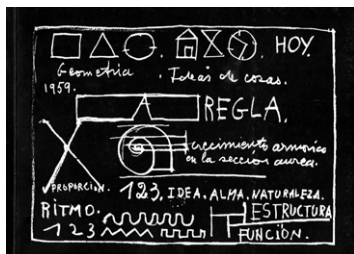 HOY.
Geometria . Ideas de cosas.
1959.
A REGLA.
crecimiento armonico
en la seccion aurea.
PROPORCION.
1 2 3, IDEA. ALMA. NATURALEZA.
RITMO.
ESTRUCTURA
1 2 3
FUNCIÓN.